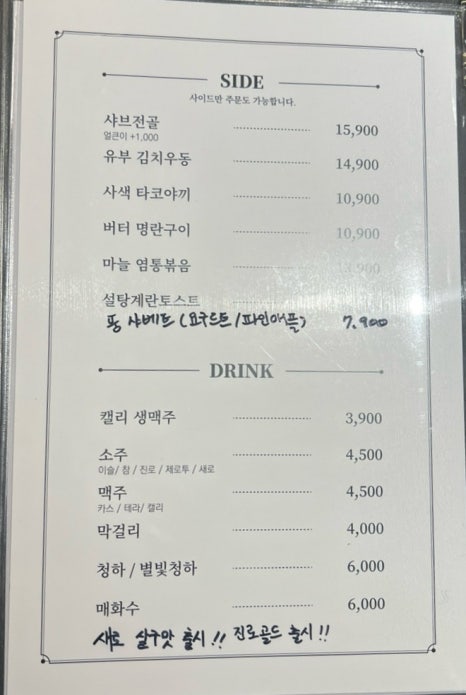 SIDE
사이드만 주문도 가능합니다.
샤브전골 15,900
얼큰이 +1,000
유부 김치우동 14,900
사색 타코야끼 10,900
버터 명란구이 10,900
마늘 염통볶음
설탕계란토스트
퐁 샤베트 (요구르트/파인애플) 7.900
DRINK
캘리 생맥주 3,900
소주 4,500
이슬/ 참 / 진로 / 제로투 / 새로
맥주 4,500
카스 / 테라/ 캘리
막걸리 4,000
청하 / 별빛청하 6,000
매화수 6,000
새로 살구맛 출시!! 진로골드 출시!!